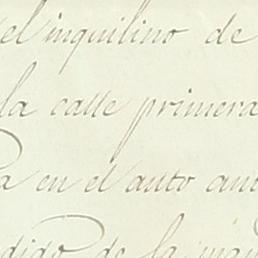 el inquilino de
la calle primera
a en el auto ant
dido de la inqu